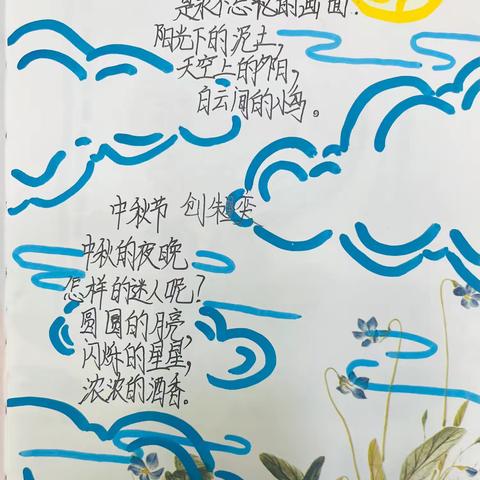 是永不忘記的画面：
阳光下的泥土，
天空上的夕阳，
白云间的小鸟。
中秋节 创
中秋的夜晚
怎样的迷人呢？
圆圆的月亮，
闪烁的星星，
浓浓的酒香。